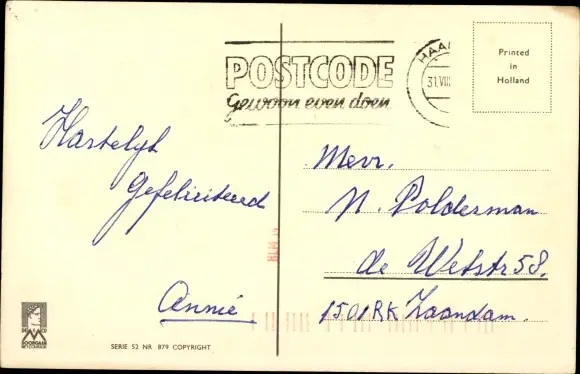 POSTCODE
Gewoon even doen
HAA
31.VIII
Printed
in
Holland
Hartelyk
Gefeliciteerd
Annie
Mevr.
N. Polderman
de Wetstr 58.
1501RK Zaandam.
SERIE 52 NR 879 COPYRIGHT